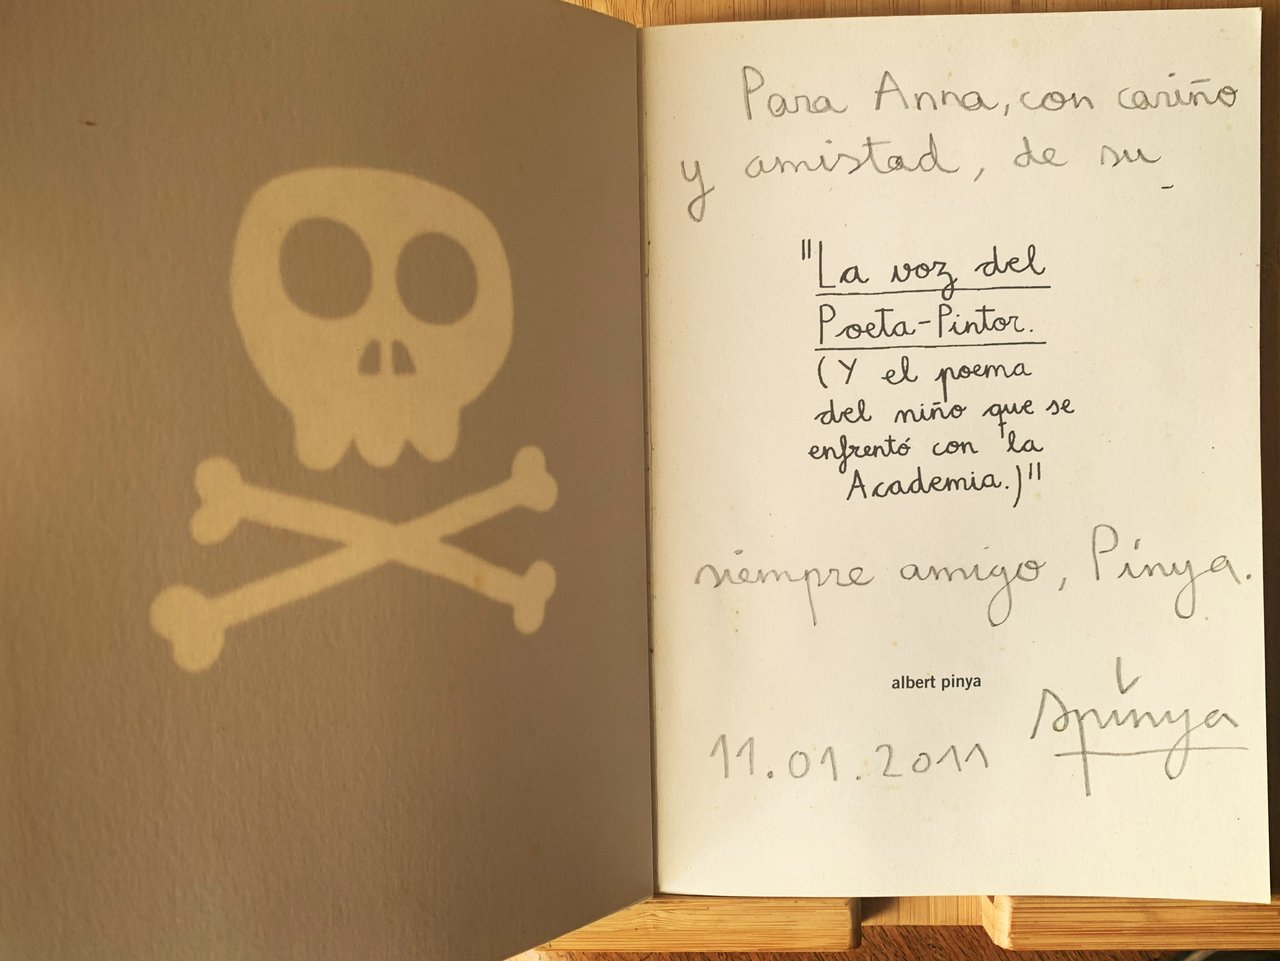 Para Anna, con cariño
y amistad, de su
"La voz del
Poeta-Pintor.
(Y el poema
del niño que se
enfrentó con la
Academia.)"
siempre amigo, Pinya.
albert pinya
Apinya
11.01.2011